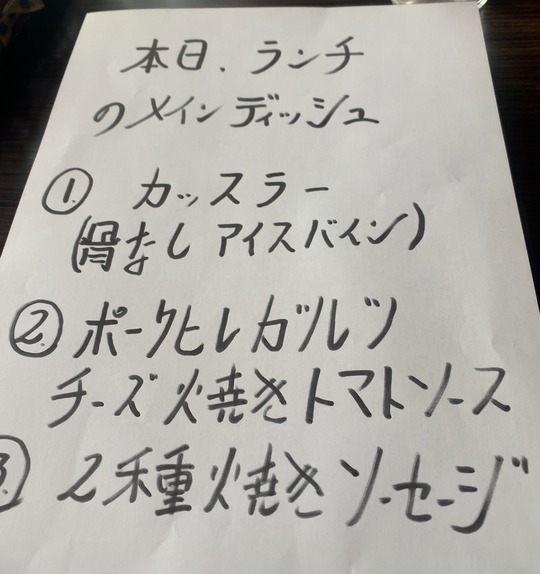 本日、ランチ
のメインディッシュ
① カッスラー
(骨なし アイスバイン)
② ポークヒレカツレツ
チーズ焼きトマトソース
③ 2種焼きソーセージ